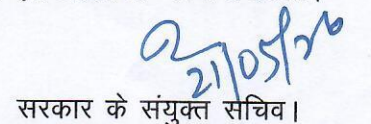 21/05/26
सरकार के संयुक्त सचिव।